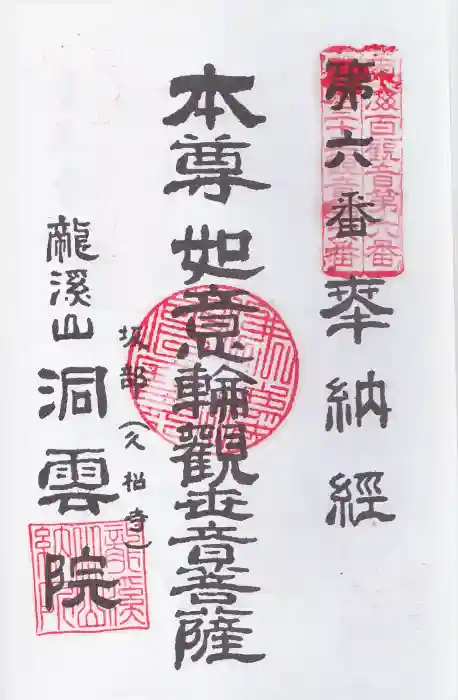 第六番奉納經
本尊如意輪觀世音菩薩
坂部(久松寺)
龍溪山洞雲院